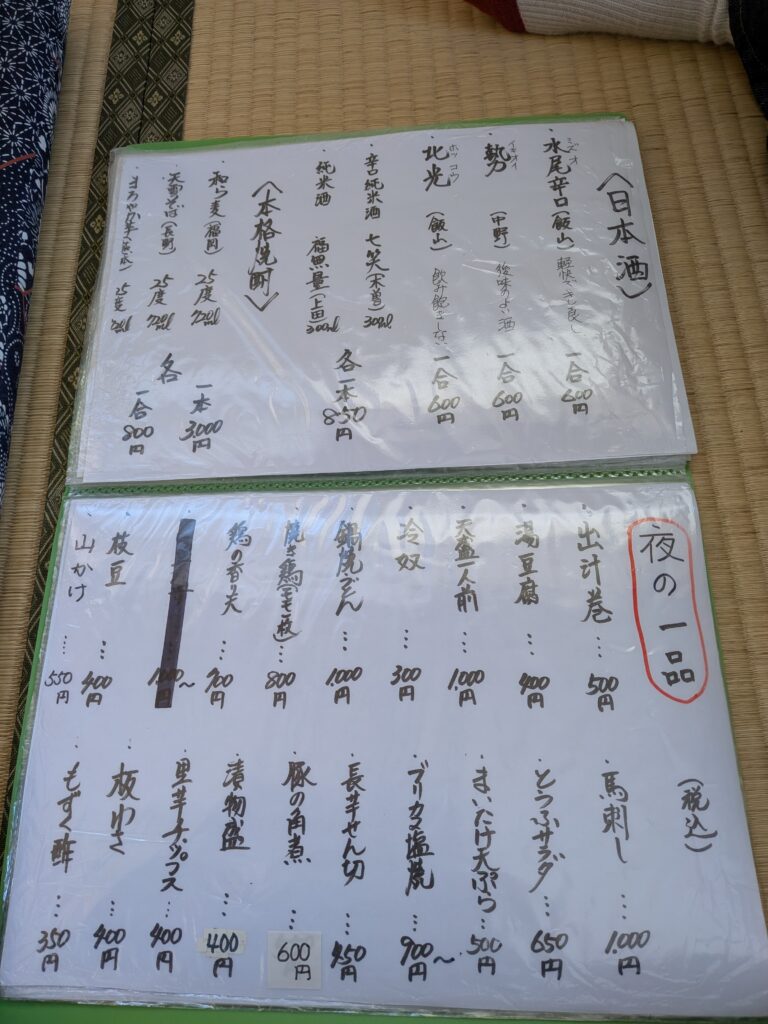 〈日本酒〉
水尾辛口(飯山) 軽快でキレ良し 一合600円
ミズオ
勢(中野) 後味のよい酒 一合600円
イキオイ
北光(飯山) 飲み飽きしない 一合600円
ホッコウ
辛口純米酒 七笑(木曽) 300ml
純米酒 福無量(上田) 300ml
各一本850円
〈本格焼酎〉
和ら麦(福岡) 25度 720ml
天山戸そば(長野) 25度 720ml
まろやか芋 25度 720ml
各
一本3,000円
一合800円
夜の一品
(税込)
・出汁巻…500円
・湯豆腐…400円
・天盛一人前…1,000円
・冷奴…300円
・鍋焼うどん…1,000円
・焼き鶏(モモ一枚)…800円
・鶏の香り天…700円
1,000〜
・枝豆…400円
・山かけ…550円
・馬刺し…1,000円
・とうふサラダ…650円
・まいたけ天ぷら…500円
・ブリカマ塩焼…900〜円
・長芋せん切…450円
・豚の角煮…600円
・漬物盛…400円
・里芋チップス…400円
・板わさ…400円
・もずく酢…350円